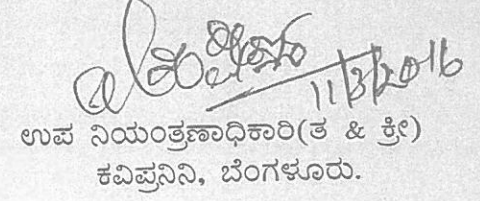 11/3/2016
ಉಪ ನಿಯಂತ್ರಣಾಧಿಕಾರಿ(ತ & ಕ್ರೀ)
ಕವಿಪ್ರನಿನಿ, ಬೆಂಗಳೂರು.